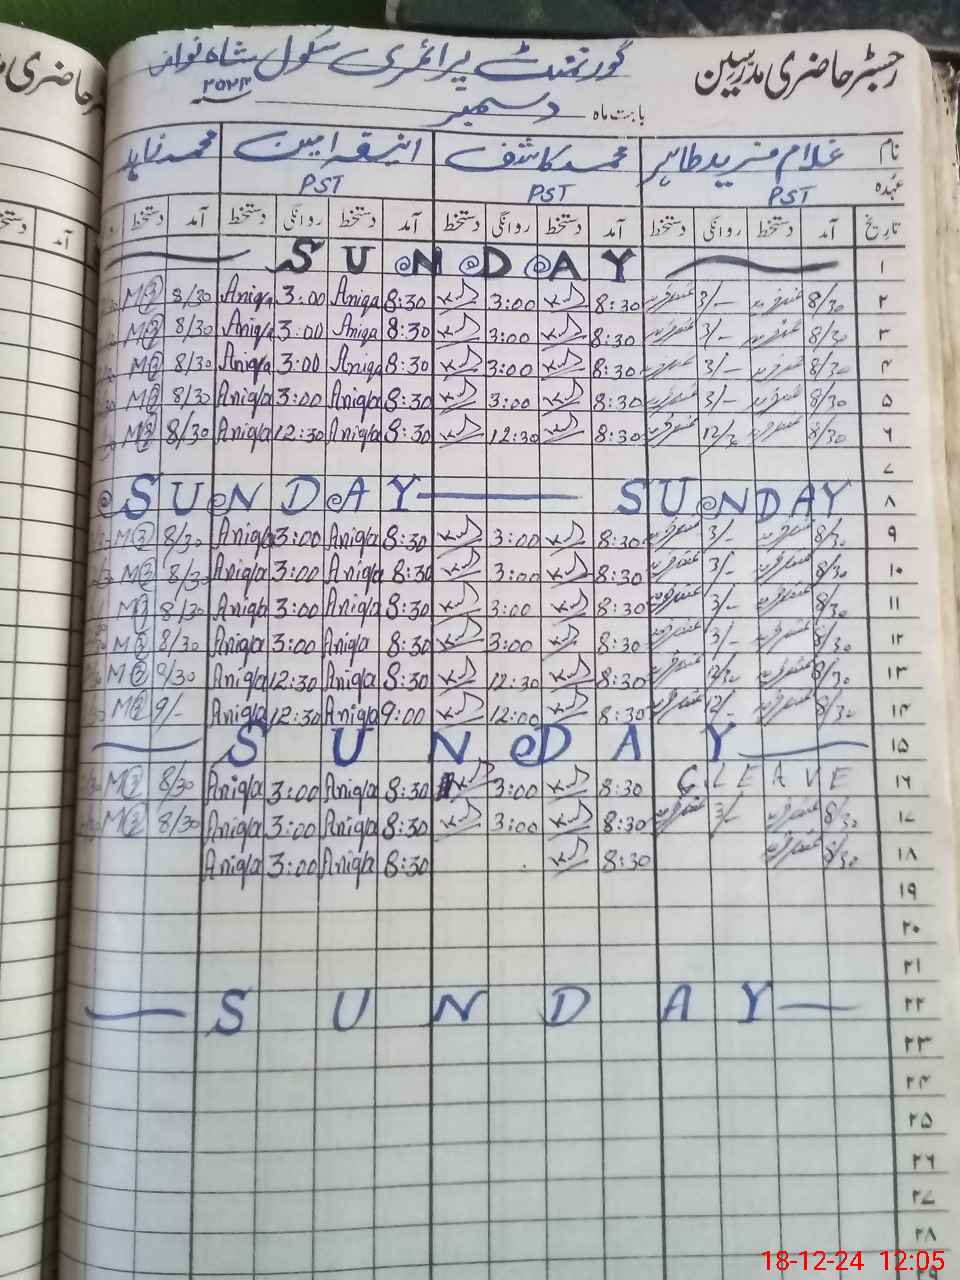 رجسٹر حاضری مدرسین گورنمنٹ پرائمری سکول شاہ نواز
بابت ماہ دسمبر ۲۰۲۴
نام غلام فرید طاہر محمد کاشف انیقہ امین محمد زاہد
عہدہ PST PST PST
تاریخ آمد دستخط روانگی دستخط آمد دستخط روانگی دستخط آمد دستخط روانگی دستخط آمد دستخط
۱ SUNDAY
۲ 8/30 3/- 8:30 3:00 8:30 Aniqa 3:00 Aniqa 8/30
۳ 8/30 3/- 8:30 3:00 8:30 Aniqa 3:00 Aniqa 8/30
۴ 8/30 3/- 8:30 3:00 8:30 Aniqa 3:00 Aniqa 8/30
۵ 8/30 3/- 8:30 3:00 8:30 Aniqa 3:00 Aniqa 8/30
۶ 8/30 12/30 8:30 12:30 8:30 Aniqa 12:30 Aniqa 8/30
۷
۸ SUNDAY SUNDAY
۹ 8/30 3/- 8:30 3:00 8:30 Aniqa 3:00 Aniqa 8/30
۱۰ 8/30 3/- 8:30 3:00 8:30 Aniqa 3:00 Aniqa 8/30
۱۱ 8/30 3/- 8:30 3:00 8:30 Aniqa 3:00 Aniqa 8/30
۱۲ 8/30 3/- 8:30 3:00 8:30 Aniqa 3:00 Aniqa 8/30
۱۳ 8/30 12/30 8:30 12:30 8:30 Aniqa 12:30 Aniqa 8/30
۱۴ 8/30 12/- 8:30 12:00 9:00 Aniqa 12:30 Aniqa 9/-
۱۵ SUNDAY
۱۶ C.LEAVE 8:30 3:00 8:30 Aniqa 3:00 Aniqa 8/30
۱۷ 8/30 3/- 8:30 3:00 8:30 Aniqa 3:00 Aniqa 8/30
۱۸ 8/30 8:30 8:30 Aniqa 3:00 Aniqa
۱۹
۲۰
۲۱
۲۲ SUNDAY
۲۳
۲۴
۲۵
۲۶
۲۷
۲۸
۲۹
18-12-24 12:05